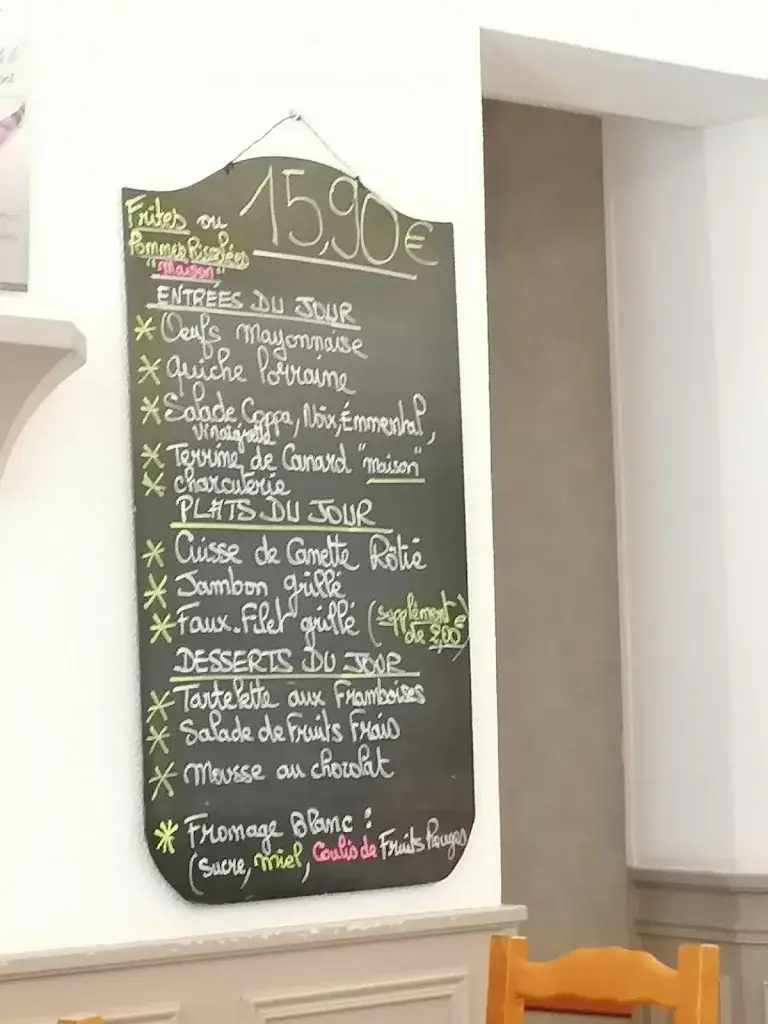 15,90€
Frites ou
Pommes Rissolées
"Maison"
ENTRÉES DU JOUR
* Oeufs Mayonnaise
* Quiche Lorraine
* Salade Coppa, Noix, Émmental,
vinaigrette
* Terrine de Canard "maison"
* charcuterie
PLATS DU JOUR
* Cuisse de Canette Rôtie
* Jambon grillé
* Faux-Filet grillé (supplément
de 2,00€)
DESSERTS DU JOUR
* Tartelette aux Framboises
* Salade de Fruits Frais
* Mousse au chocolat
* Fromage Blanc :
(sucre, miel, Coulis de Fruits Rouges